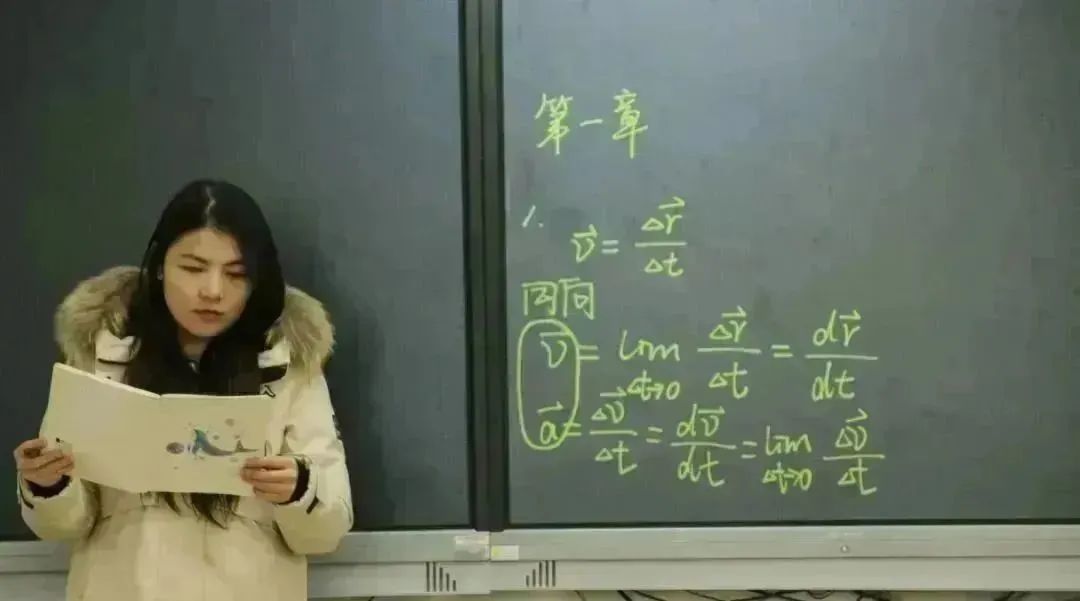 第一章
1.
v⃗ = Δr⃗/Δt
同向
v⃗ = lim Δt→0 Δr⃗/Δt = dr⃗/dt
a⃗ = Δv⃗/Δt = dv⃗/dt = lim Δt→0 Δv⃗/Δt